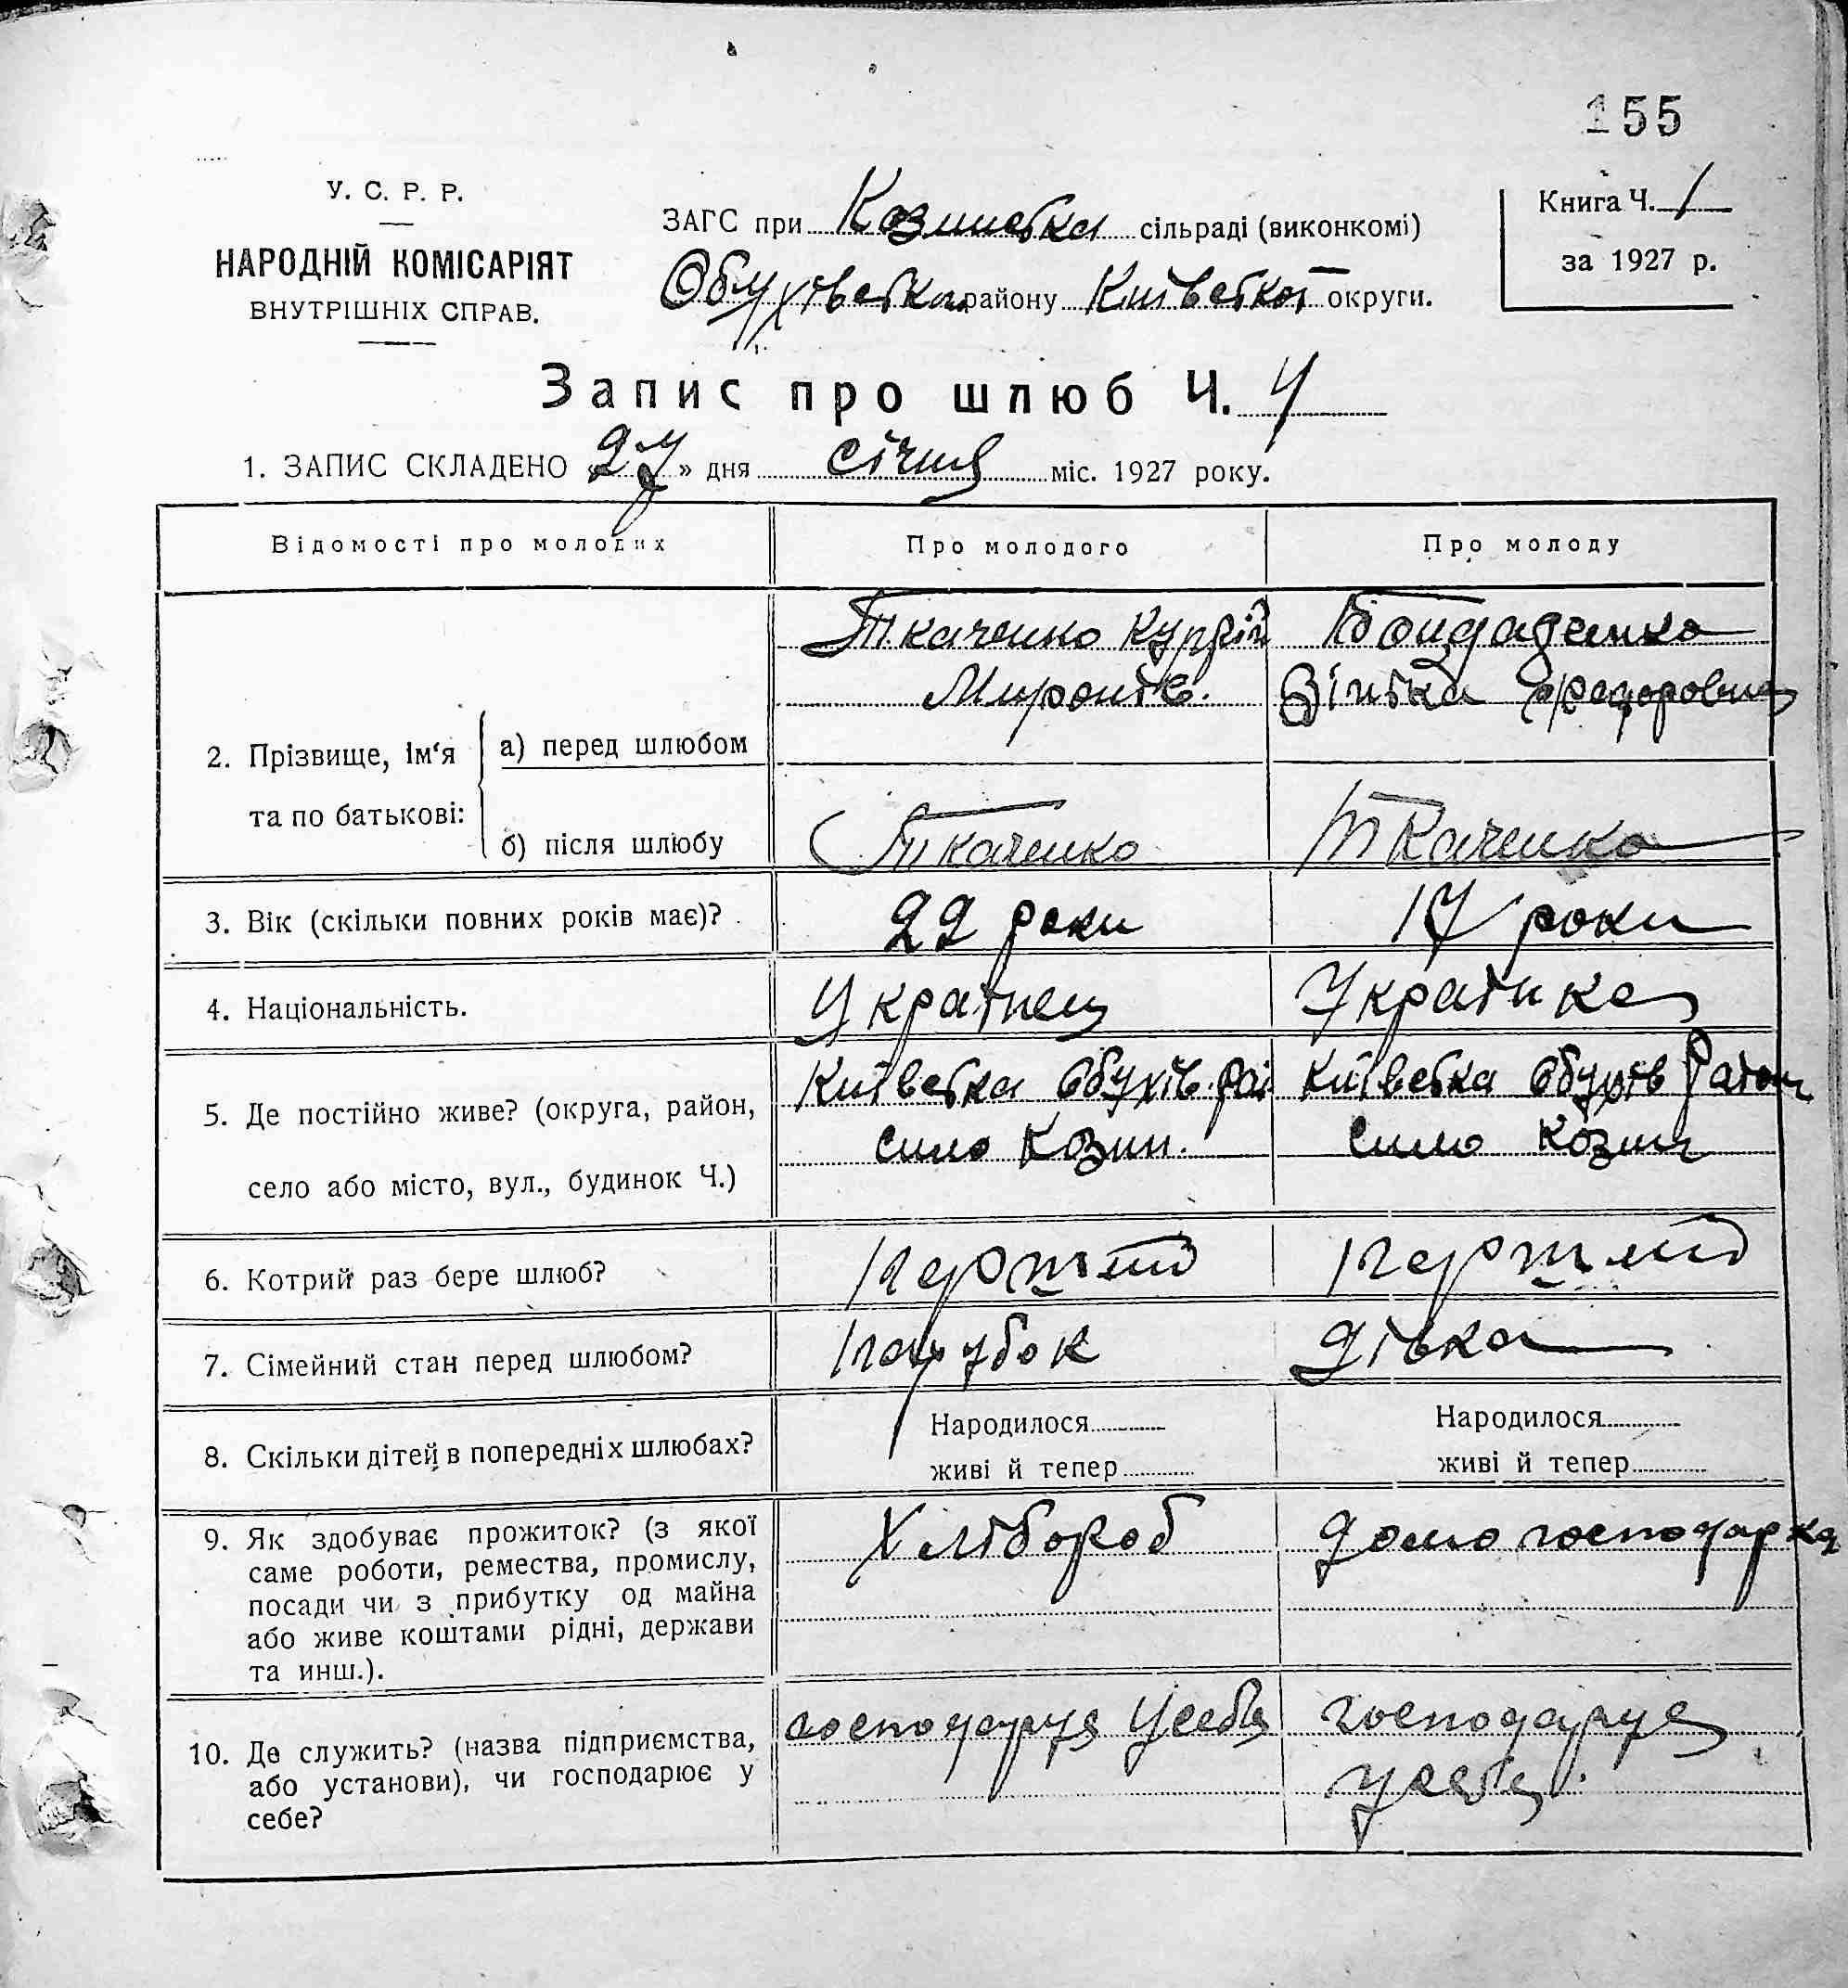 155
У. С. Р. Р.
НАРОДНІЙ КОМІСАРІЯТ
ВНУТРІШНІХ СПРАВ.
ЗАГС при Козинська сільраді (виконкомі)
Обухівська району Київської округи.
Книга Ч. 1
за 1927 р.
Запис про шлюб Ч. 4
1. ЗАПИС СКЛАДЕНО «27» дня січня міс. 1927 року.
Відомості про молодих Про молодого Про молоду
2. Прізвище, ім‘я та по батькові:
а) перед шлюбом
Ткаченко
Миронів.
Бондаренко
б) після шлюбу
Ткаченко
Ткаченко
3. Вік (скільки повних років має)?
22 роки
17 роки
4. Національність.
Українец
Українка
5. Де постійно живе? (округа, район,
село або місто, вул., будинок Ч.)
Київська Обухів. рай
сило Козин.
Київська Обухів Район
сило Козин
6. Котрий раз бере шлюб?
перший
перший
7. Сімейний стан перед шлюбом?
парубок
дівка
8. Скільки дітей в попередніх шлюбах?
Народилося
живі й тепер
Народилося
живі й тепер
9. Як здобуває прожиток? (з якої
саме роботи, ремества, промислу,
посади чи з прибутку од майна
або живе коштами рідні, держави
та инш.).
Хлібороб
домогосподарка
10. Де служить? (назва підприємства,
або установи), чи господарює у
себе?
господаруя усебя
господаруя
усебя.